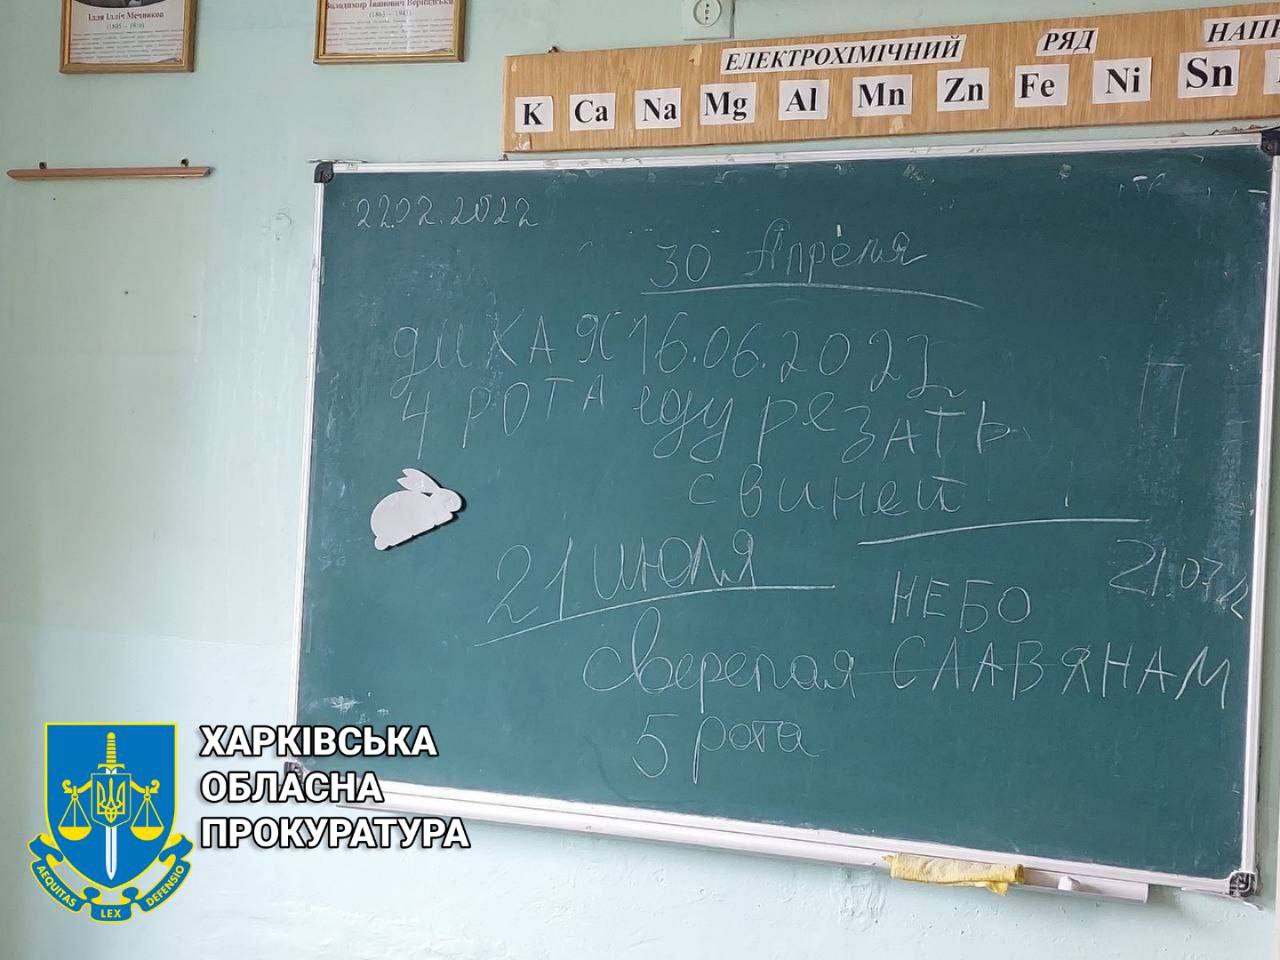 Ілля Ілліч Мечников
(1845 – 1916)
Володимир Іванович Вернадський
(1863 – 1945)
ЕЛЕКТРОХІМІЧНИЙ РЯД НАПР
K Ca Na Mg Al Mn Zn Fe Ni Sn
22.02.2022
30 Апреля
ДИКАЯ 16.06.2022
4 РОТА еду реЗАТЬ
свиней
21 июля
21.07.22
НЕБО
Сверепая СЛАВЯНАМ
5 рота
ХАРКІВСЬКА
ОБЛАСНА
ПРОКУРАТУРА
AEQUITAS LEX DEFENSIO